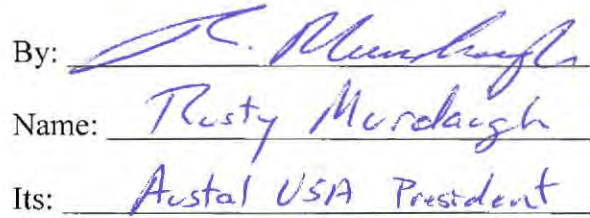 By: R. Murdaugh
Name: Rusty Murdaugh
Its: Austal USA President